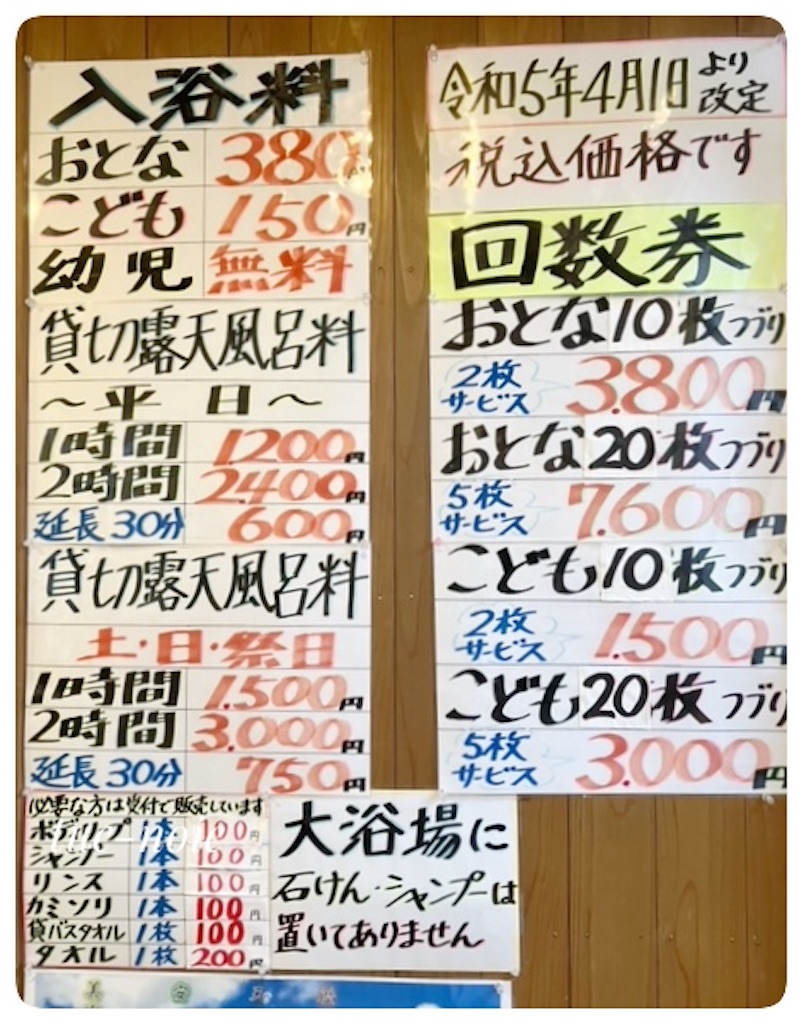 入浴料
おとな 380円
こども 150円
幼児 無料
貸切露天風呂料
～平日～
1時間 1200円
2時間 2.400円
延長30分 600円
貸切露天風呂料
土・日・祭日
1時間 1.500円
2時間 3.000円
延長30分 750円
必要な方は受付で販売しています
ボデーソープ 1本 100円
シャンプー 1本 100円
リンス 1本 100円
カミソリ 1本 100円
貸バスタオル 1枚 100円
タオル 1枚 200円
大浴場に
石けん・シャンプーは
置いてありません
令和5年4月1日より改定
税込価格です
回数券
おとな10枚つづり
2枚サービス 3.800円
おとな20枚つづり
5枚サービス 7.600円
こども10枚つづり
2枚サービス 1.500円
こども20枚つづり
5枚サービス 3.000円